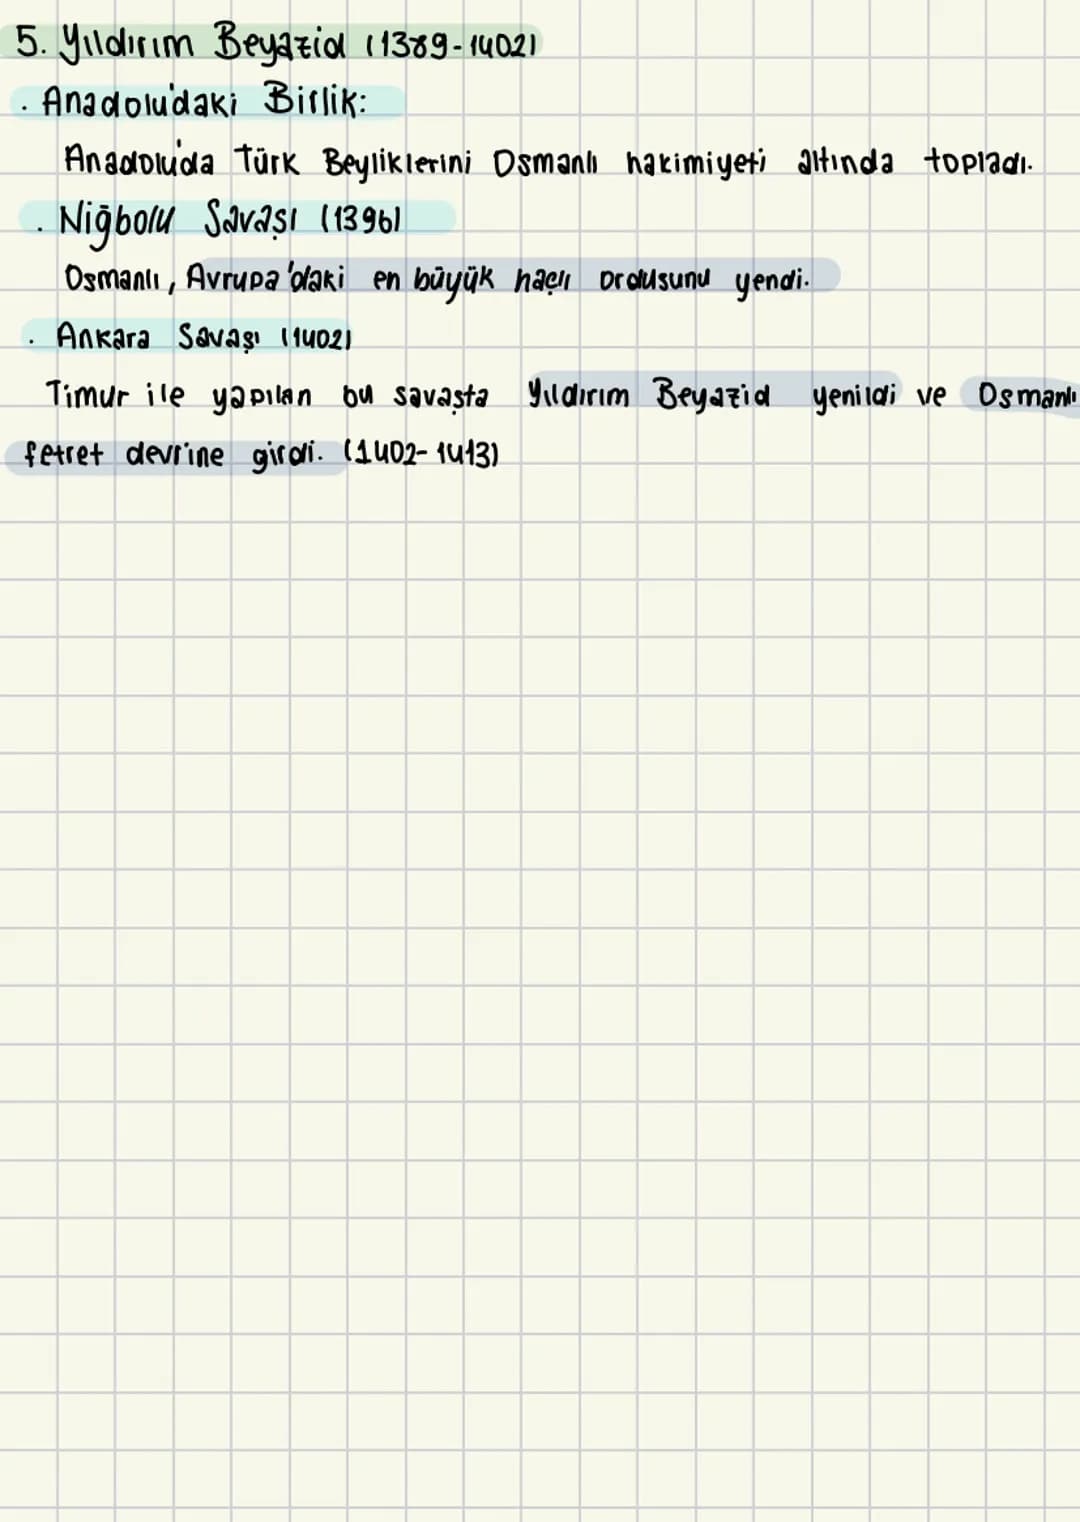 5. Yıldırım Beyazid (1389-1402)
. Anadolu'daki Birlik:
Anadolu'da Türk Beyliklerini Osmanlı hakimiyeti altında topladı.
. Niğbolu Savaşı (1396)
Osmanlı, Avrupa'daki en büyük haçlı ordusunu yendi.
. Ankara Savaşı (1402)
Timur ile yapılan bu savaşta Yıldırım Beyazid yenildi ve Osmanlı
fetret devrine girdi. (1402-1413)